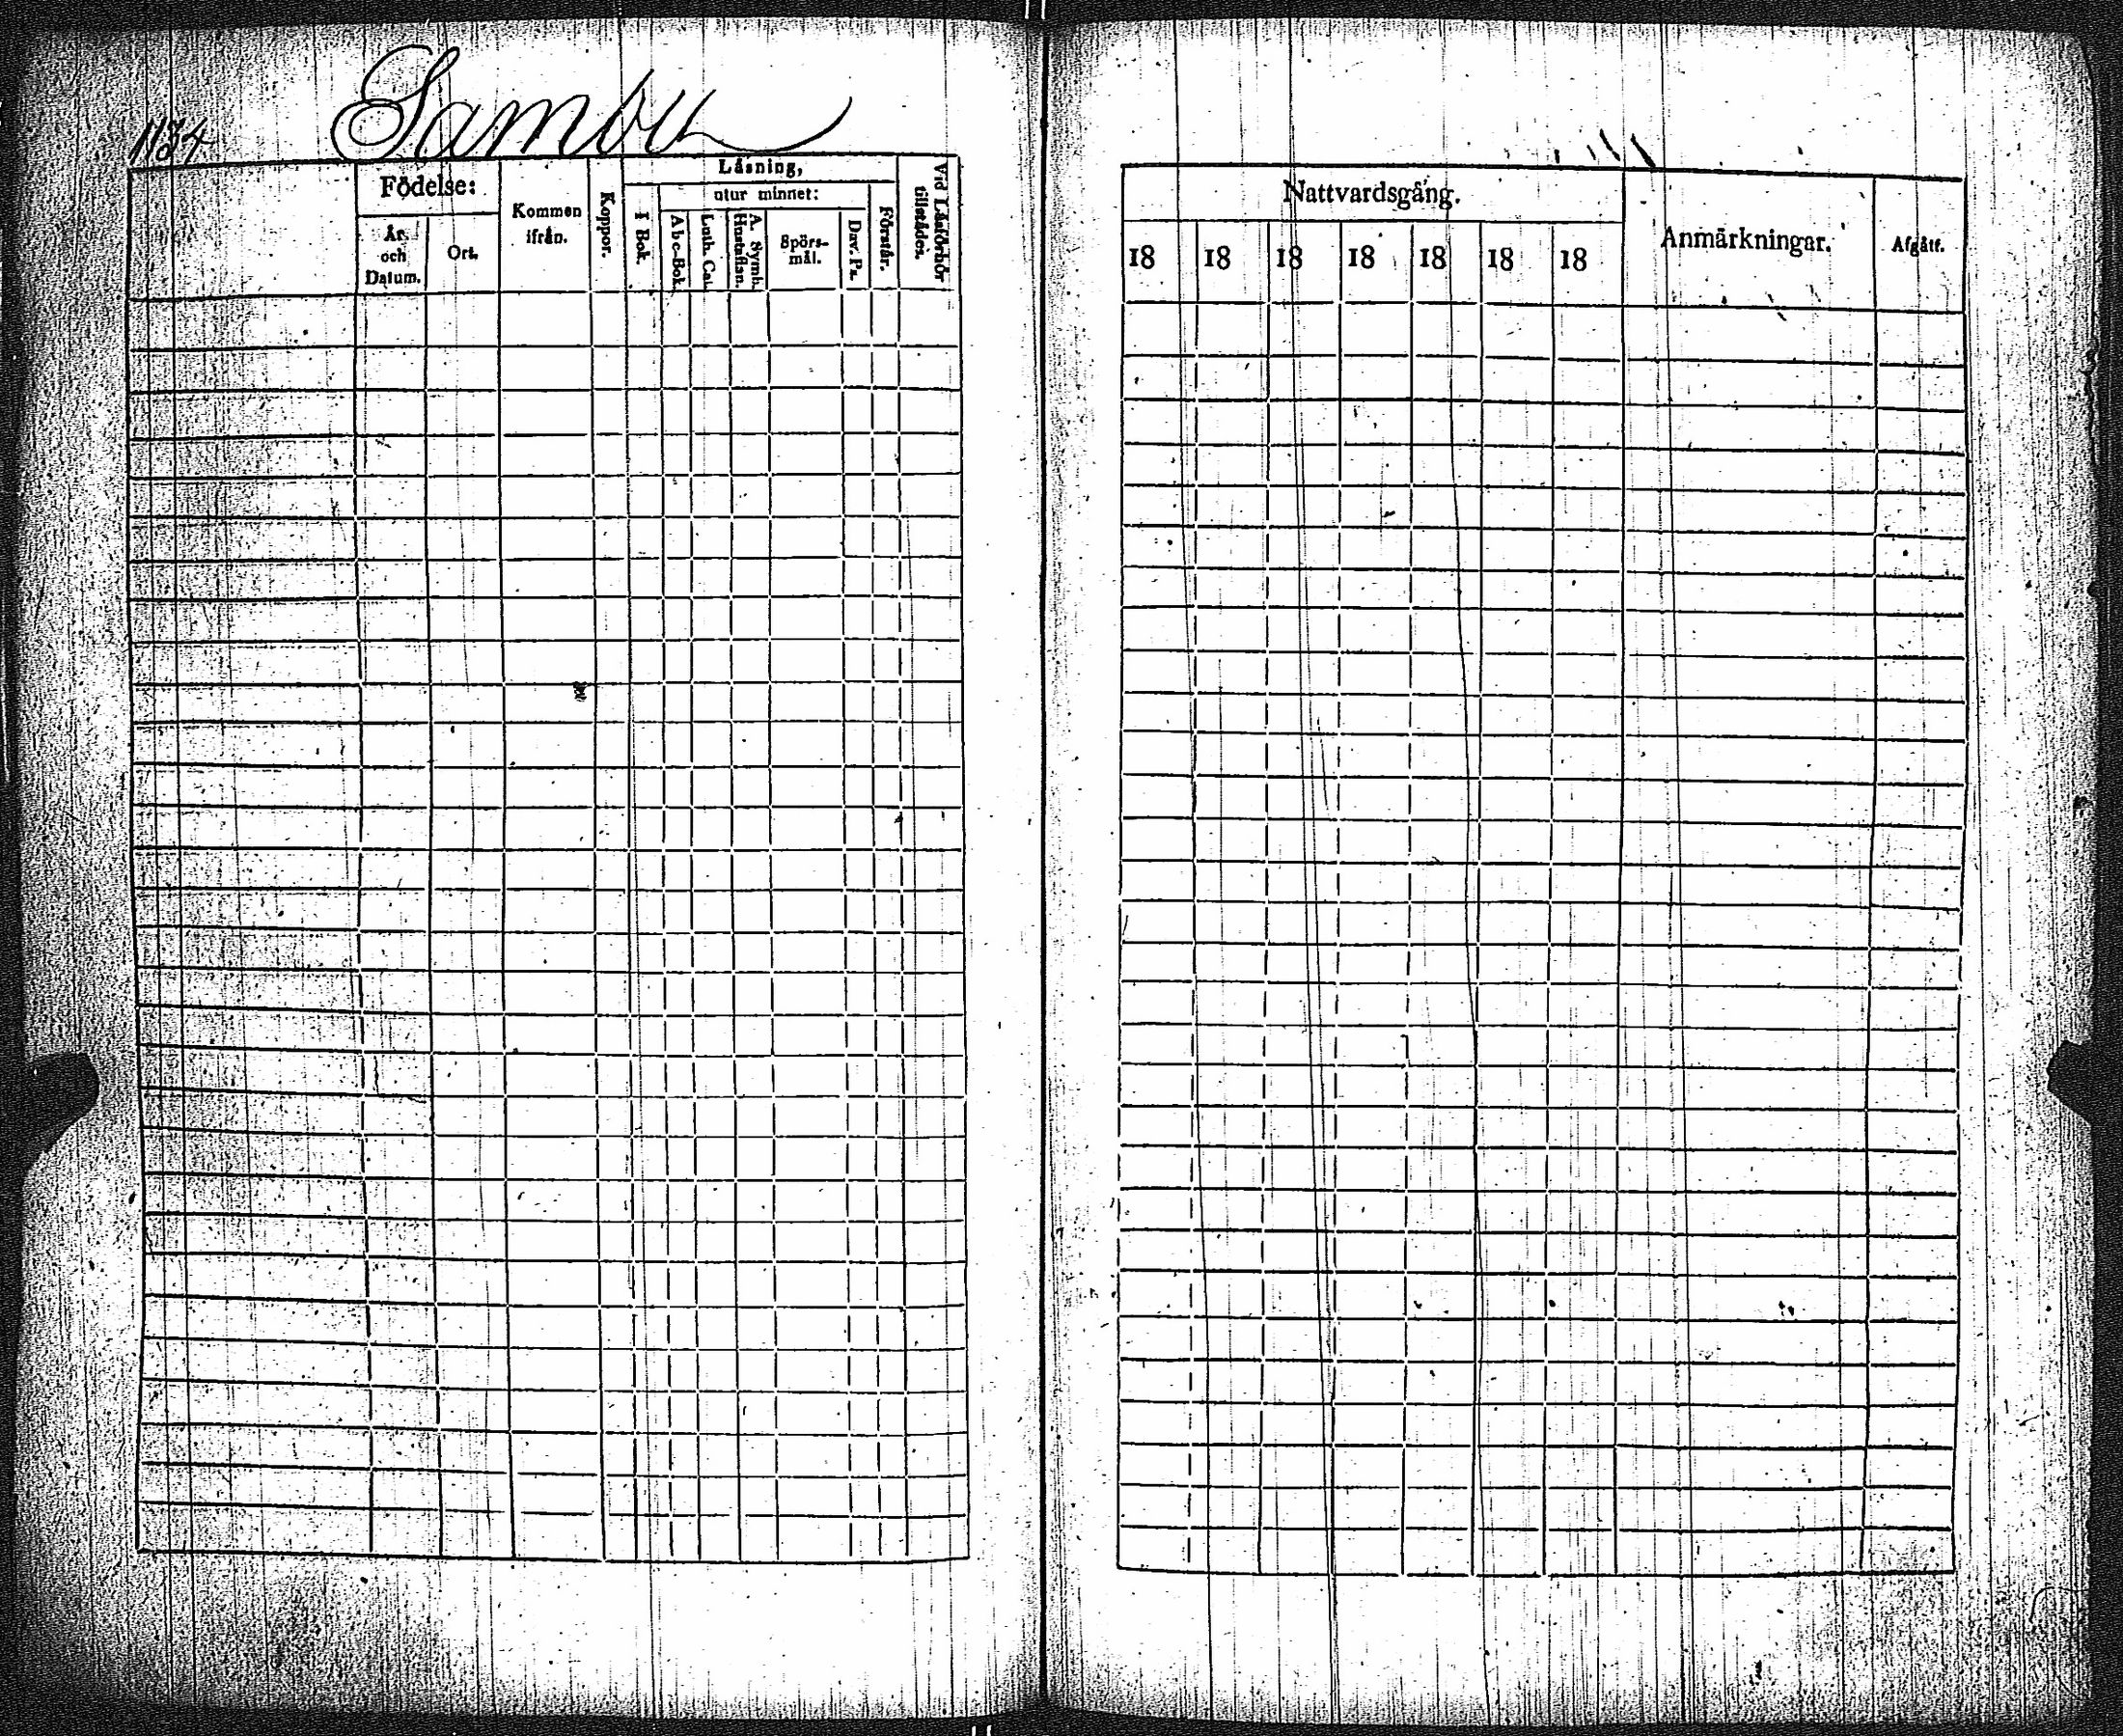 1134 Sambu
Födelse:
År och Datum.
Ort.
Kommen ifrån.
Koppor.
Läsning,
I Bok.
utur minnet:
A b c-Bok.
Luth. Cat.
A. Symb. Hustaflan.
Spörs-
mål.
Dav. Ps.
Förstår.
Vid Läsförhör tillstädes.
Nattvardsgång.
18 18 18 18 18 18 18
Anmärkningar.
Afgått.